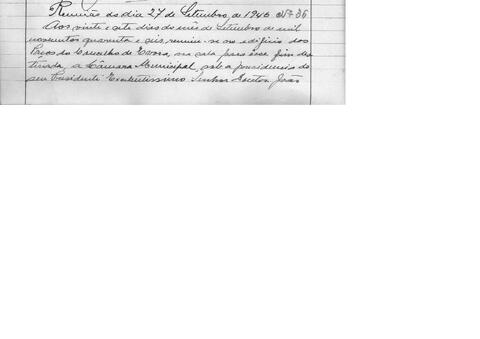 Reunião do dia 27 de Setembro, de 1946 Nº 36
Aos vinte e sete dias do mês de Setembro de mil
novecentos quarenta e seis, reuniu-se no edifício dos
Paços do Concelho de Évora, na sala para esse fim des-
tinada, a Câmara Municipal, sob a presidencia do
seu Presidente Excelentissimo Senhor Doutor João